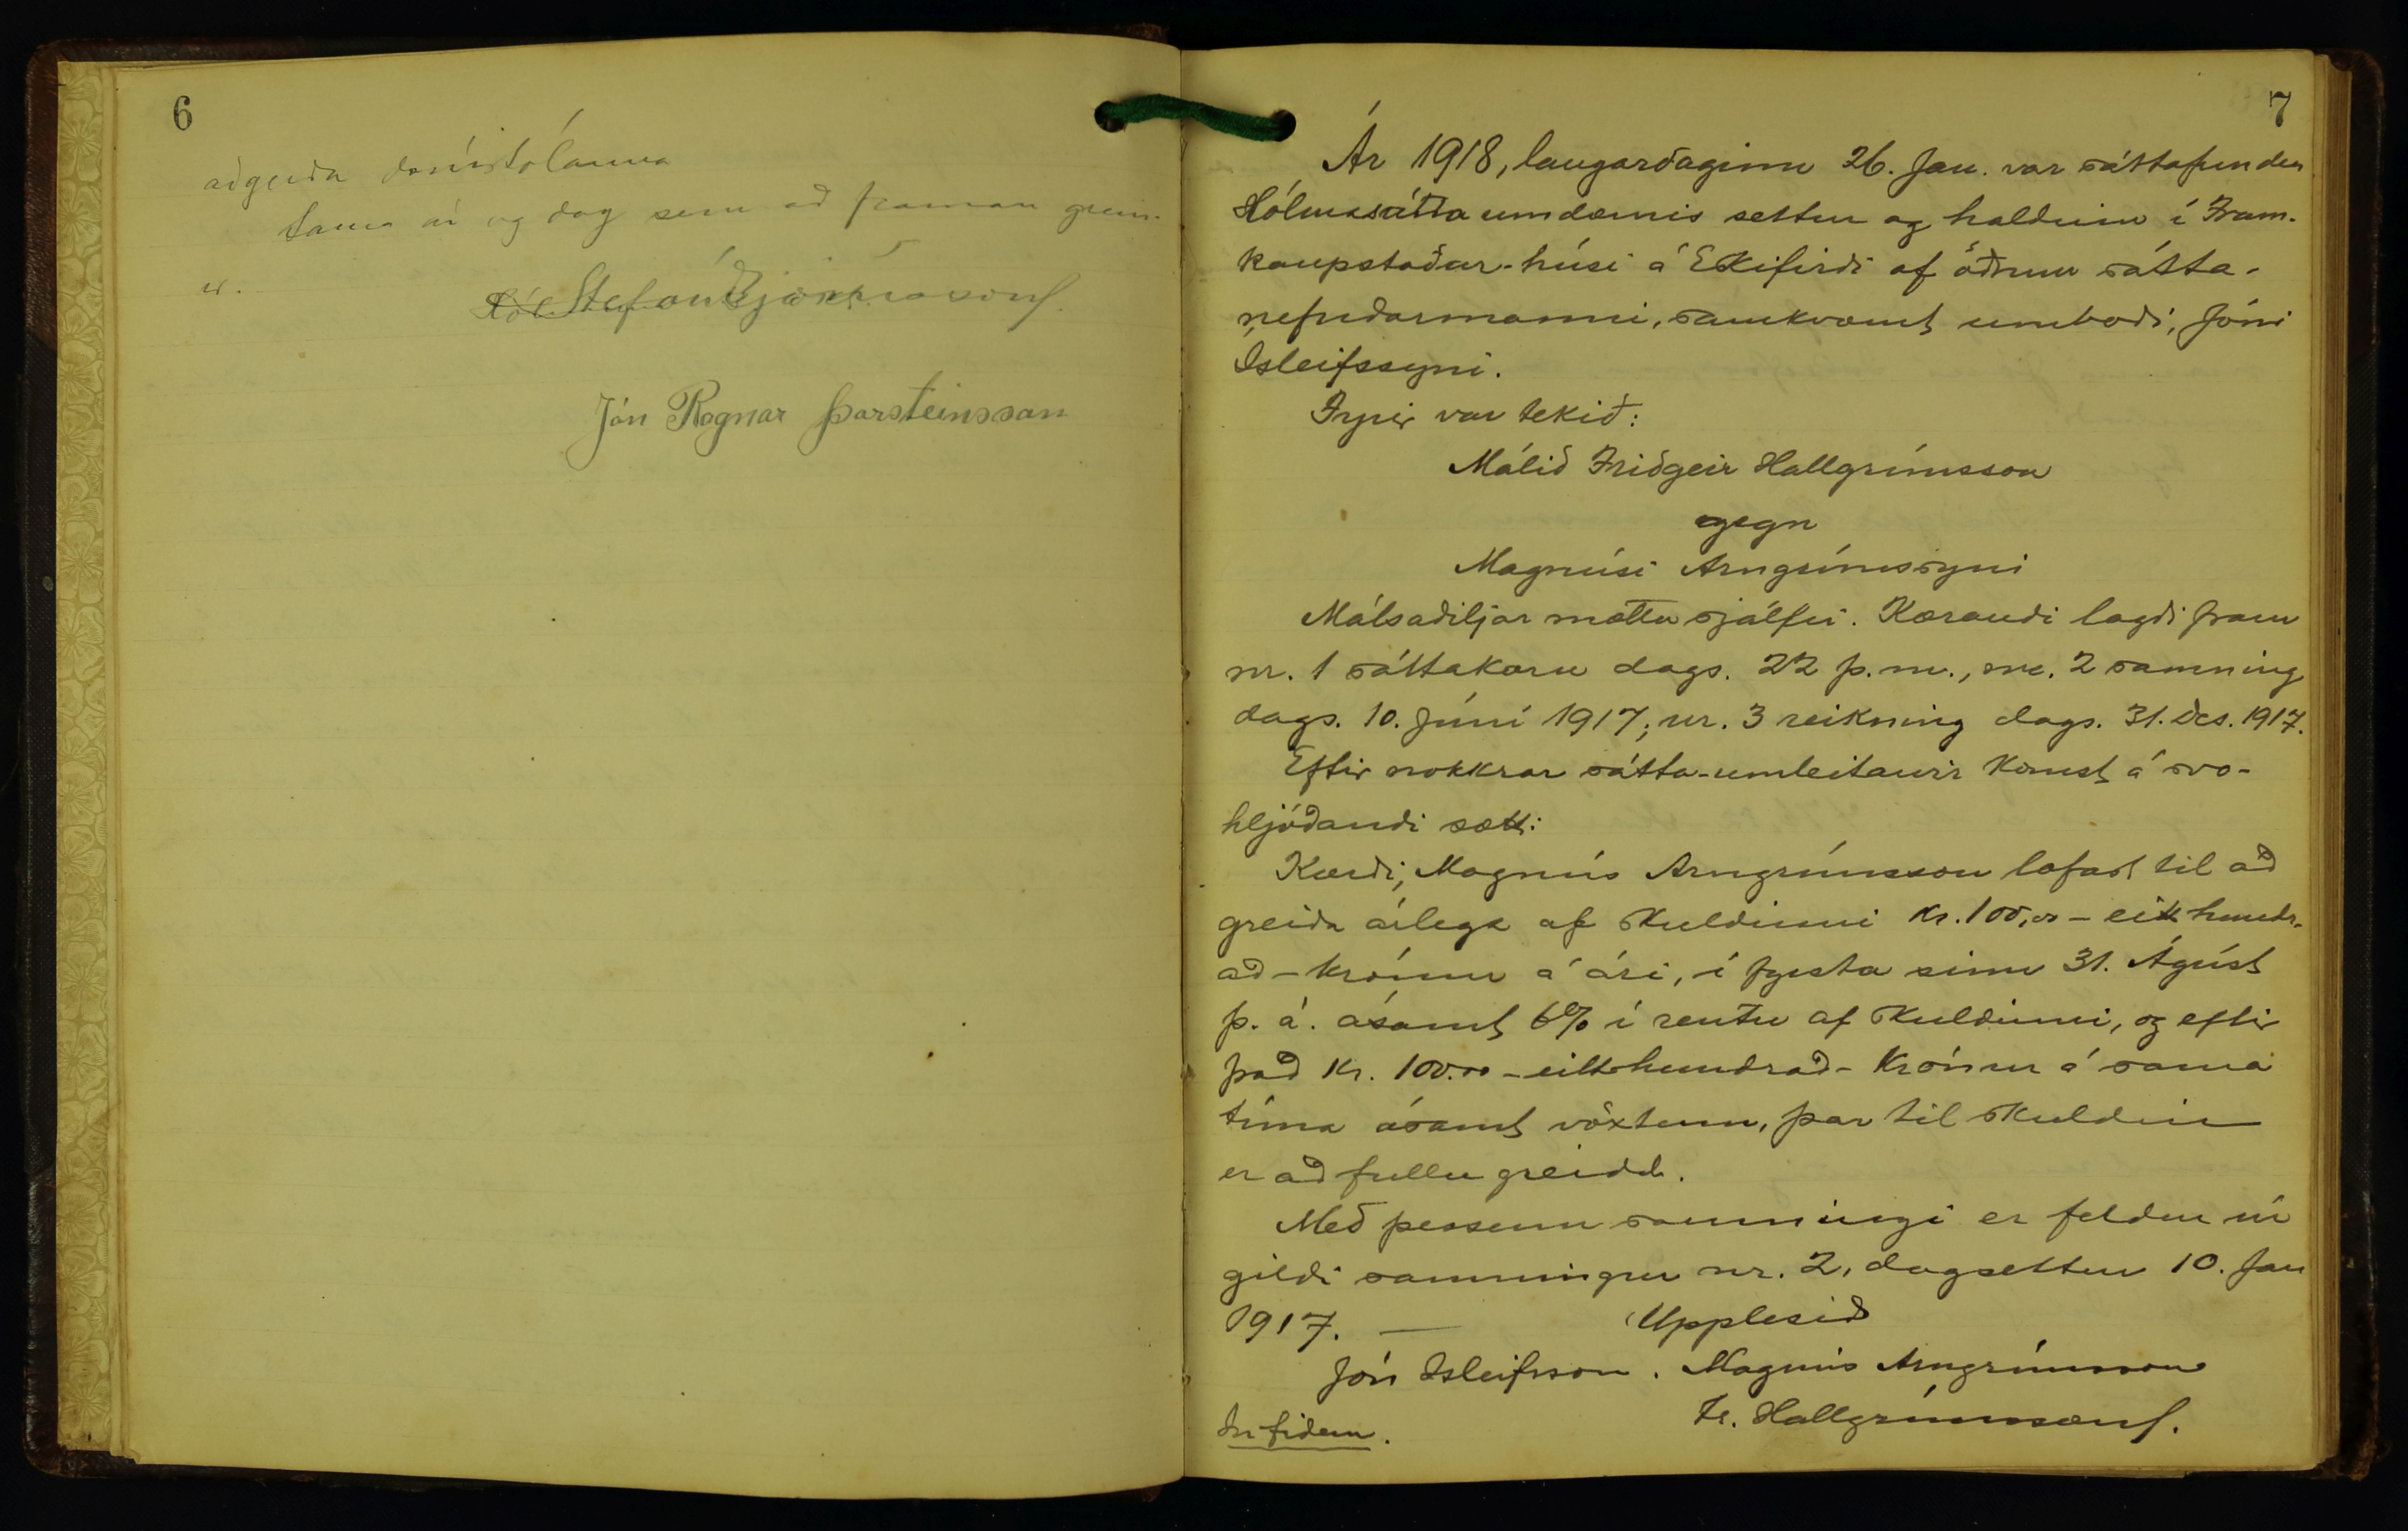 6
aðgerða dómstólanna
Sama ár og dag sem að framan grein-
ir.
Stefán Bjarnason
Jón Ragnar Þorsteinsson
7
Ár 1918, laugardaginn 26. Jan. var sáttafundur
Hólmasáttaumdæmis settur og haldinn í Fram-
kaupstaðar-húsi á Eskifirði af öðrum sátta-
nefndarmanni, samkvæmt umboði, Jóni
Isleifssyni.
Fyrir var tekið:
Málið Friðgeir Hallgrímsson
gegn
Magnúsi Arngrímssyni
Málsaðiljar mættu sjálfir. Kærandi lagði fram
nr. 1 sáttakæru dags. 22 þ.m., nr. 2 samning
dags. 10. Júní 1917, nr. 3 reikning dags. 31. Des. 1917.
Eftir nokkrar sátta-umleitanir komst á svo-
hljóðandi sætt:
Kærði, Magnús Arngrímsson lofast til að
greiða árlega af skuldinni kr. 100,00 - eitt hundr-
að - krónur á ári, í fyrsta sinn 31. Ágúst
þ. á. ásamt 6% í rentu af skuldinni, og eftir
það kr. 100.00 - eitthundrað - krónur á sama
tíma ásamt vöxtum, þar til skuldin
er að fullu greidd.
Með þessum samningi er feldur úr
gildi samningur nr. 2, dagsettur 10. Jan
1917. — Upplesið
Jón Isleifsson. Magnús Arngrímsson
Fr. Hallgrímsson.
In fidem.